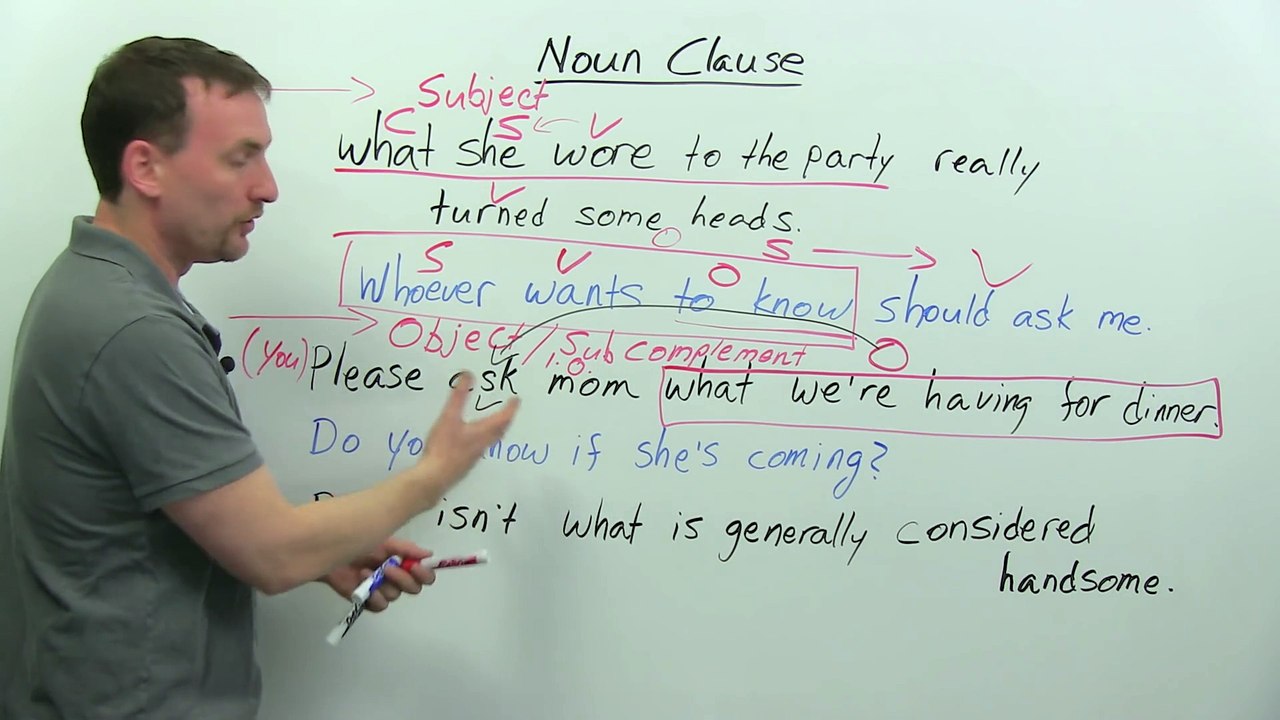 Noun Clause
Subject
C S V
what she wore to the party really
V
turned some heads.
O S V
S V O
Whoever wants to know should ask me.
Object / Sub complement
V I.O. O
(you) Please ask mom what we're having for dinner.
Do you know if she's coming?
isn't what is generally considered
handsome.